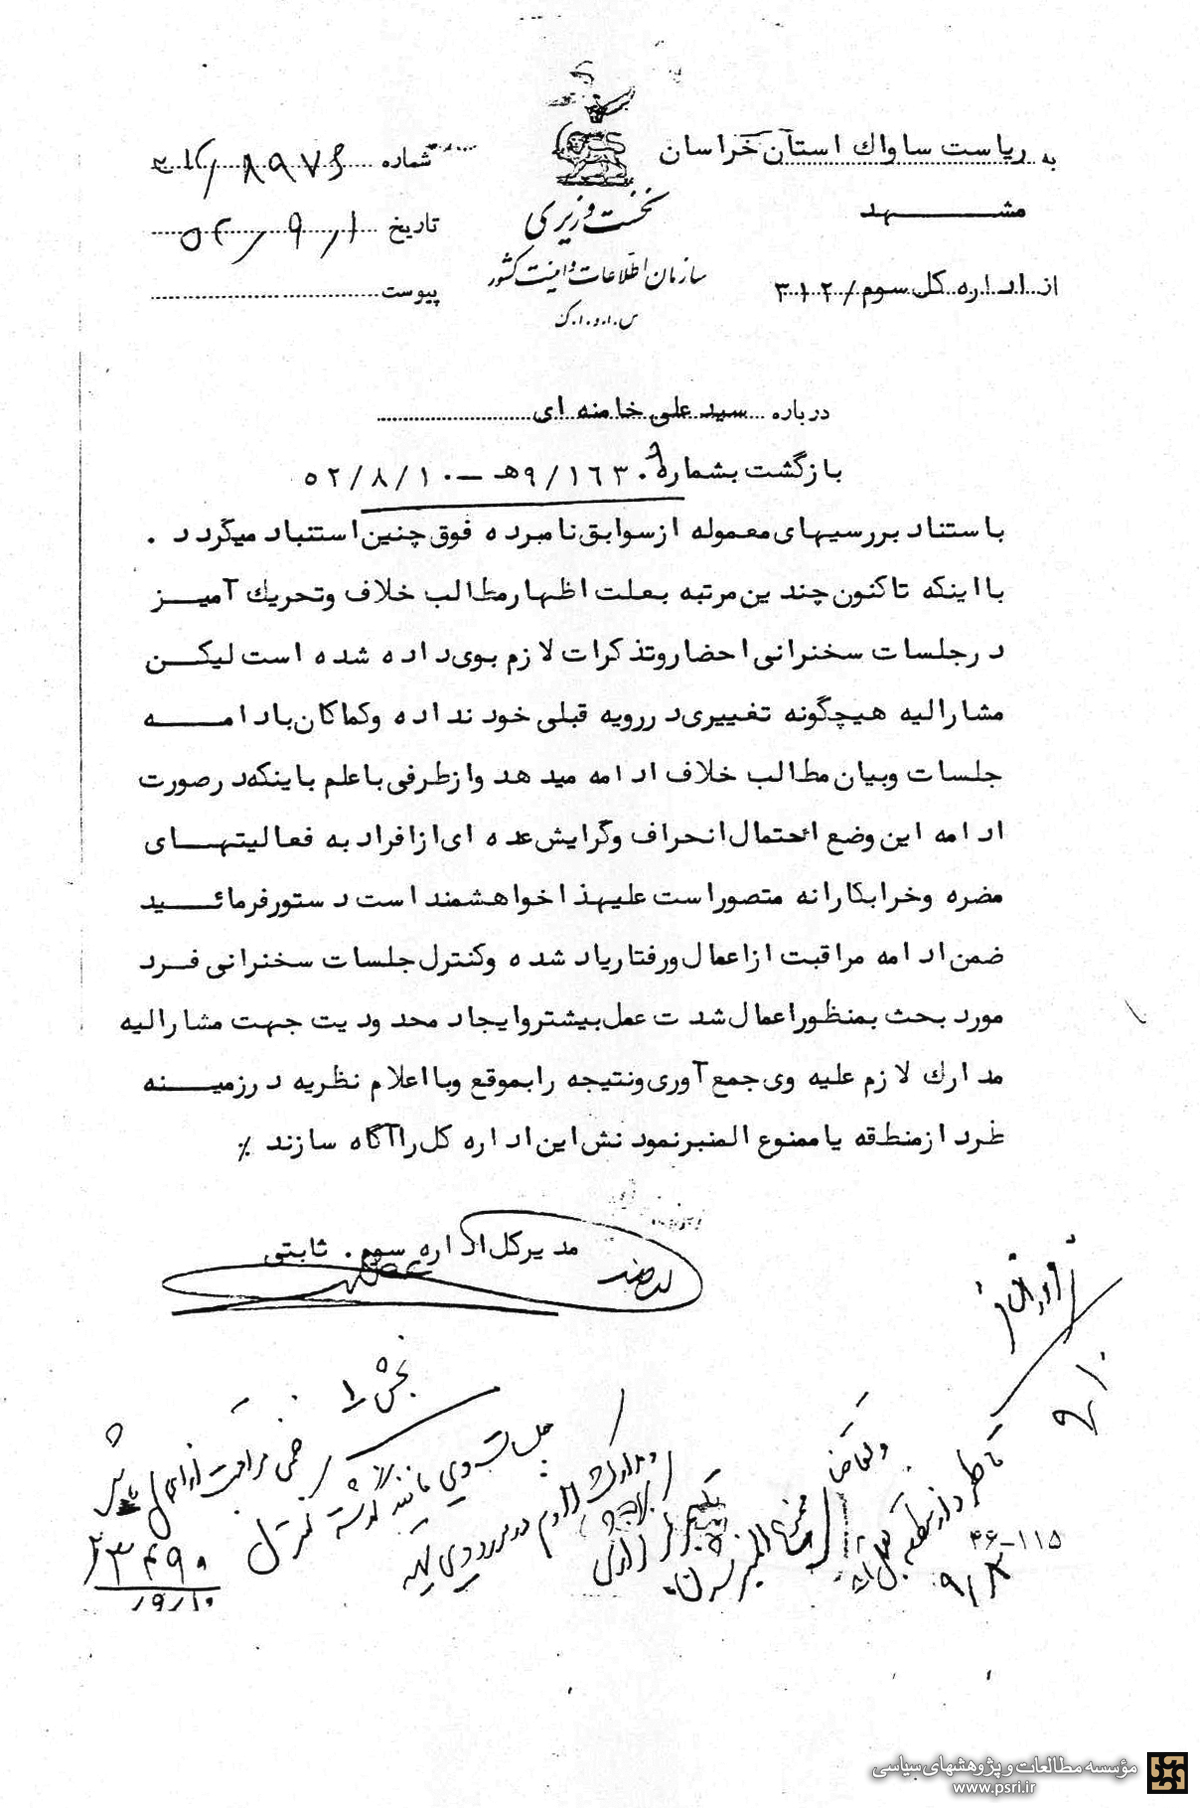 به ریاست ساواک استان خراسان
مشهد
از اداره کل سوم / ۳۱۲
نخست وزیری
سازمان اطلاعات و امنیت کشور
س.ا.و.ا.ک
شماره
تاریخ ۵۲/۹/۱
پیوست
درباره سید علی خامنه ای
بازگشت بشماره ۱۶۳۰۹/۹هـ - ۵۲/۸/۱۰
باستناد بررسیهای معموله از سوابق نامبرده فوق چنین استنباد میگردد .
با اینکه تاکنون چندین مرتبه بعلت اظهار مطالب خلاف و تحریک آمیز
در جلسات سخنرانی احضار و تذکرات لازم بوی داده شده است لیکن
مشارالیه هیچگونه تغییری در رویه قبلی خود نداده و کماکان بادامه
جلسات و بیان مطالب خلاف ادامه میدهد و از طرفی با علم باینکه در صورت
ادامه این وضع احتمال انحراف و گرایش عده ای از افراد به فعالیتهای
مضره و خرابکارانه متصور است علیهذا خواهشمند است دستور فرمائید
ضمن ادامه مراقبت از اعمال و رفتار یاد شده و کنترل جلسات سخنرانی فرد
مورد بحث بمنظور اعمال شدت عمل بیشتر و ایجاد محدودیت جهت مشارالیه
مدارک لازم علیه وی جمع آوری و نتیجه را بموقع و با اعلام نظریه در زمینه
طرد از منطقه یا ممنوع المنبر نمودنش این اداره کل را آگاه سازند ٪
مدیر کل اداره سوم . ثابتی
بخش ۱
ضمن مراقبت از اعمال
جلسات وی مانند گذشته کنترل
۴۶-۱۱۵
مؤسسه مطالعات و پژوهشهای سیاسی
www.psri.ir